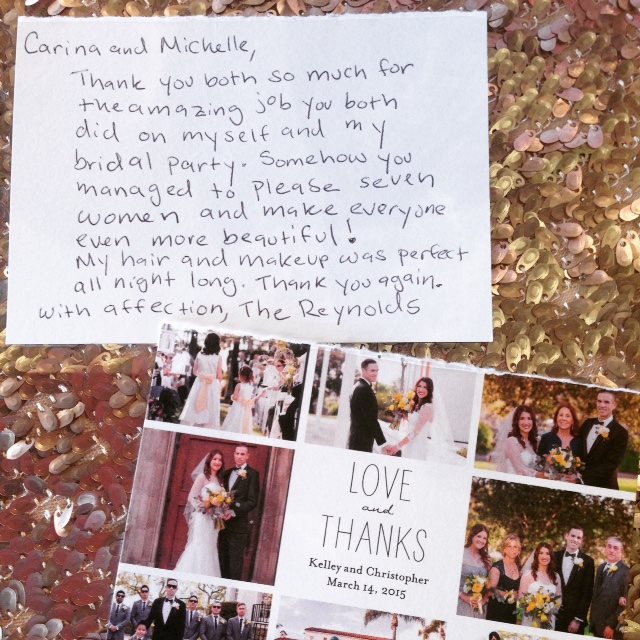 Carina and Michelle,
Thank you both so much for
the amazing job you both
did on myself and my
bridal party. Somehow you
managed to please seven
women and make everyone
even more beautiful!
My hair and makeup was perfect
all night long. Thank you again.
with affection, The Reynolds
LOVE
and
THANKS
Kelley and Christopher
March 14, 2015